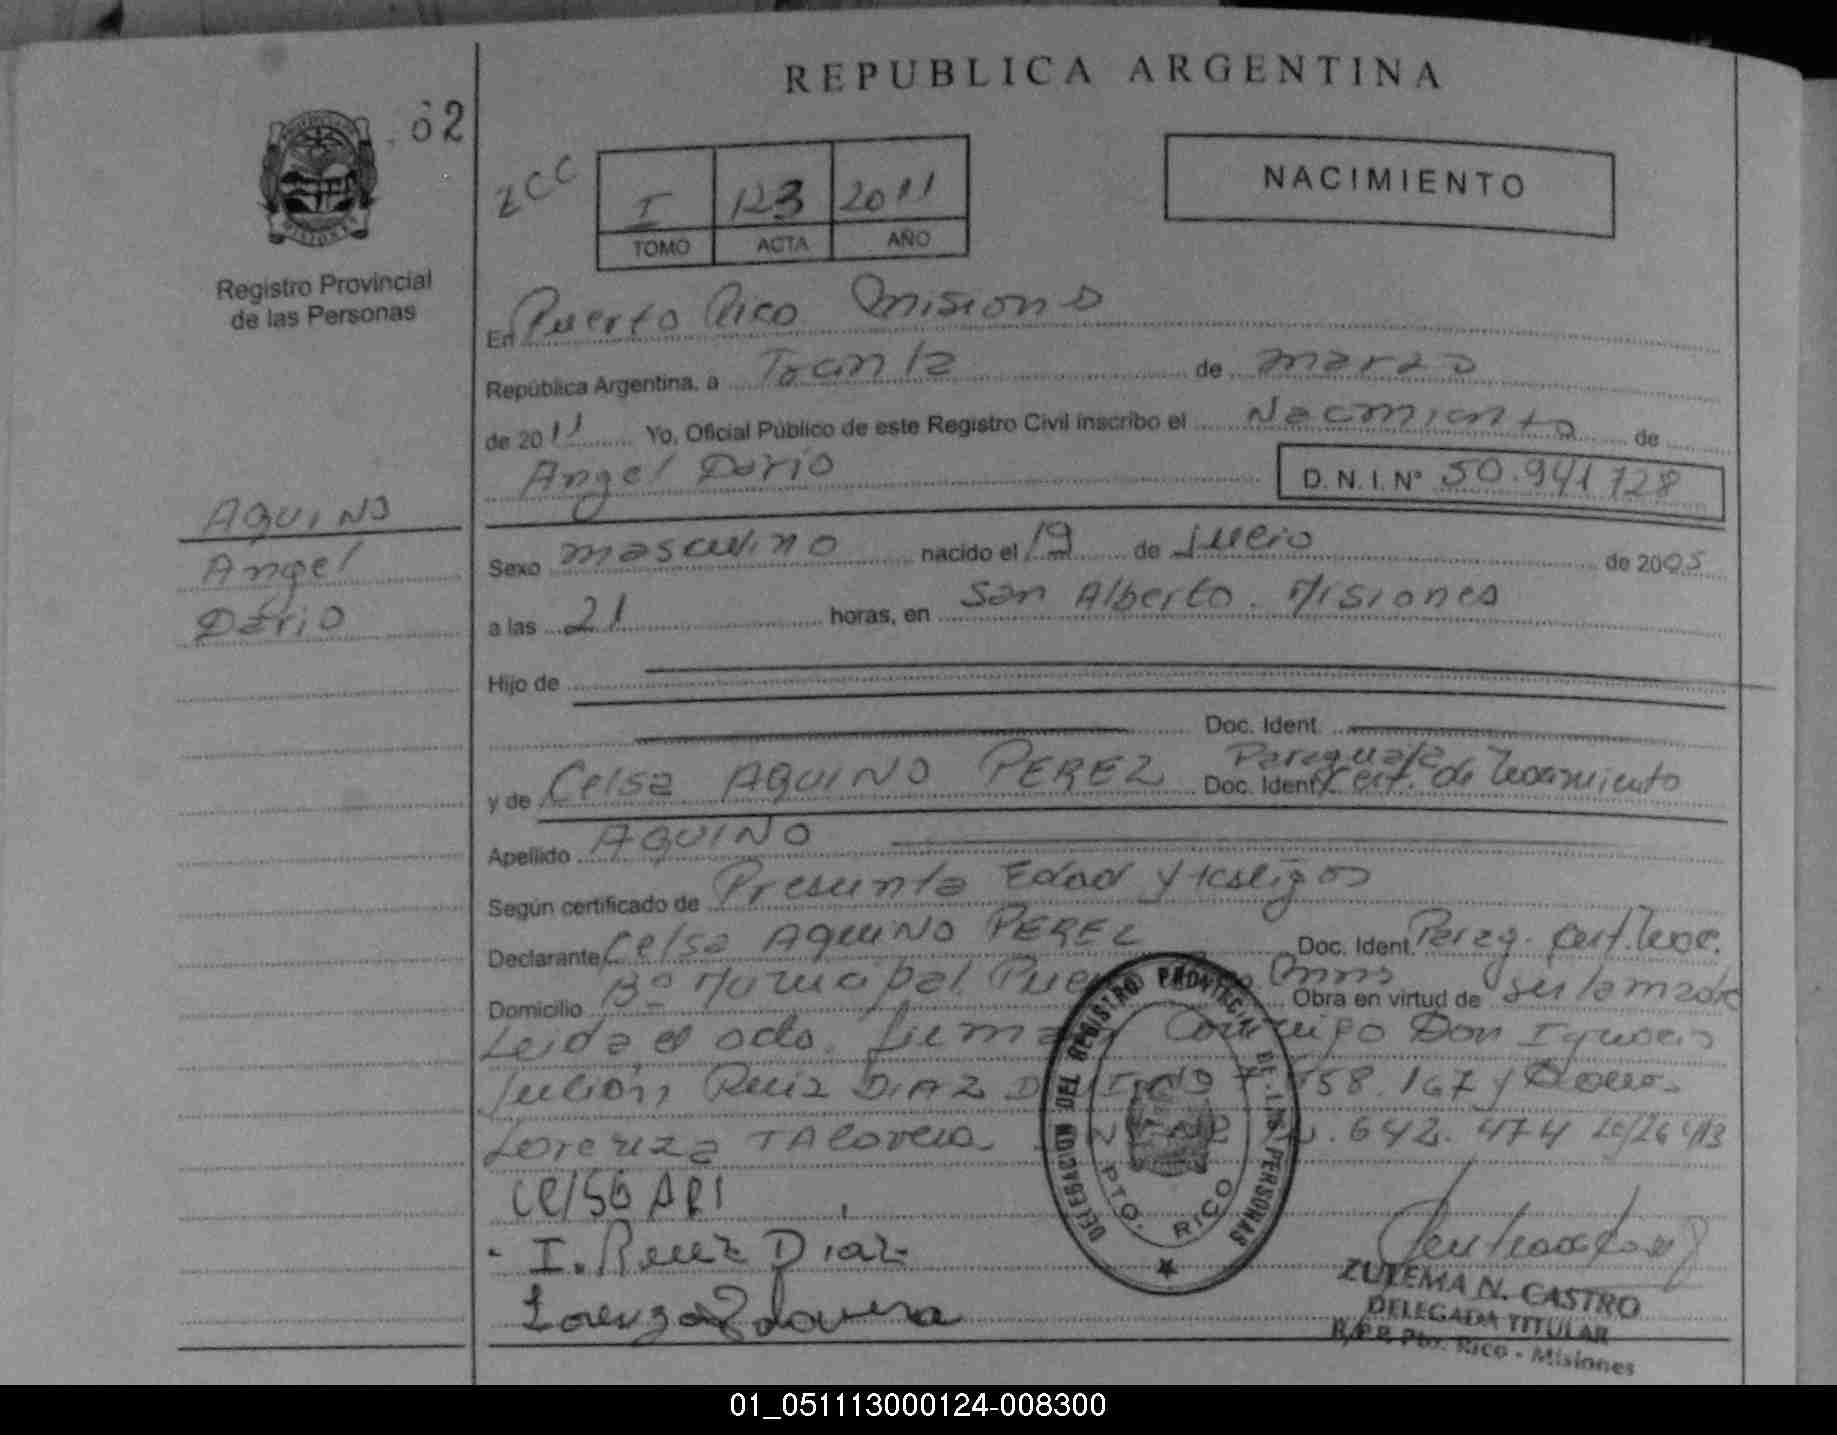 REPUBLICA ARGENTINA
62
ZCC
I 123 2011
TOMO ACTA AÑO
NACIMIENTO
Registro Provincial
de las Personas
En Puerto Rico Misiones
República Argentina, a Treinta de marzo
de 2011 Yo, Oficial Público de este Registro Civil inscribo el Nacimiento de
Angel Dario D.N.I.Nº 50.941728
AQUINO
Angel
Dario
Sexo masculino nacido el 19 de Julio de 2005
a las 21 horas, en San Alberto. Misiones
Hijo de
Doc. Ident.
y de Celsa AQUINO PEREZ Doc. Ident. Paraguaya Cert. de Nacimiento
Apellido AQUINO
Según certificado de Presunta Edad y testigos
Declarante Celsa AQUINO PEREZ Doc. Ident. Parag. Cert. Nac.
Domicilio Bº Municipal Obra en virtud de ser la madre
Leida el acta. Conmigo Don Ignacio
Julián Ruiz DIAZ 158.167 y
Lorenza TALavera 642.474
Celso ARI
I. Ruiz Diaz
Lorenza Talavera
DELEGACION DEL REGISTRO PROVINCIAL DE LAS PERSONAS
PTO. RICO
ZULEMA N. CASTRO
DELEGADA TITULAR
R.P.P. Pto. Rico - Misiones
01_051113000124-008300